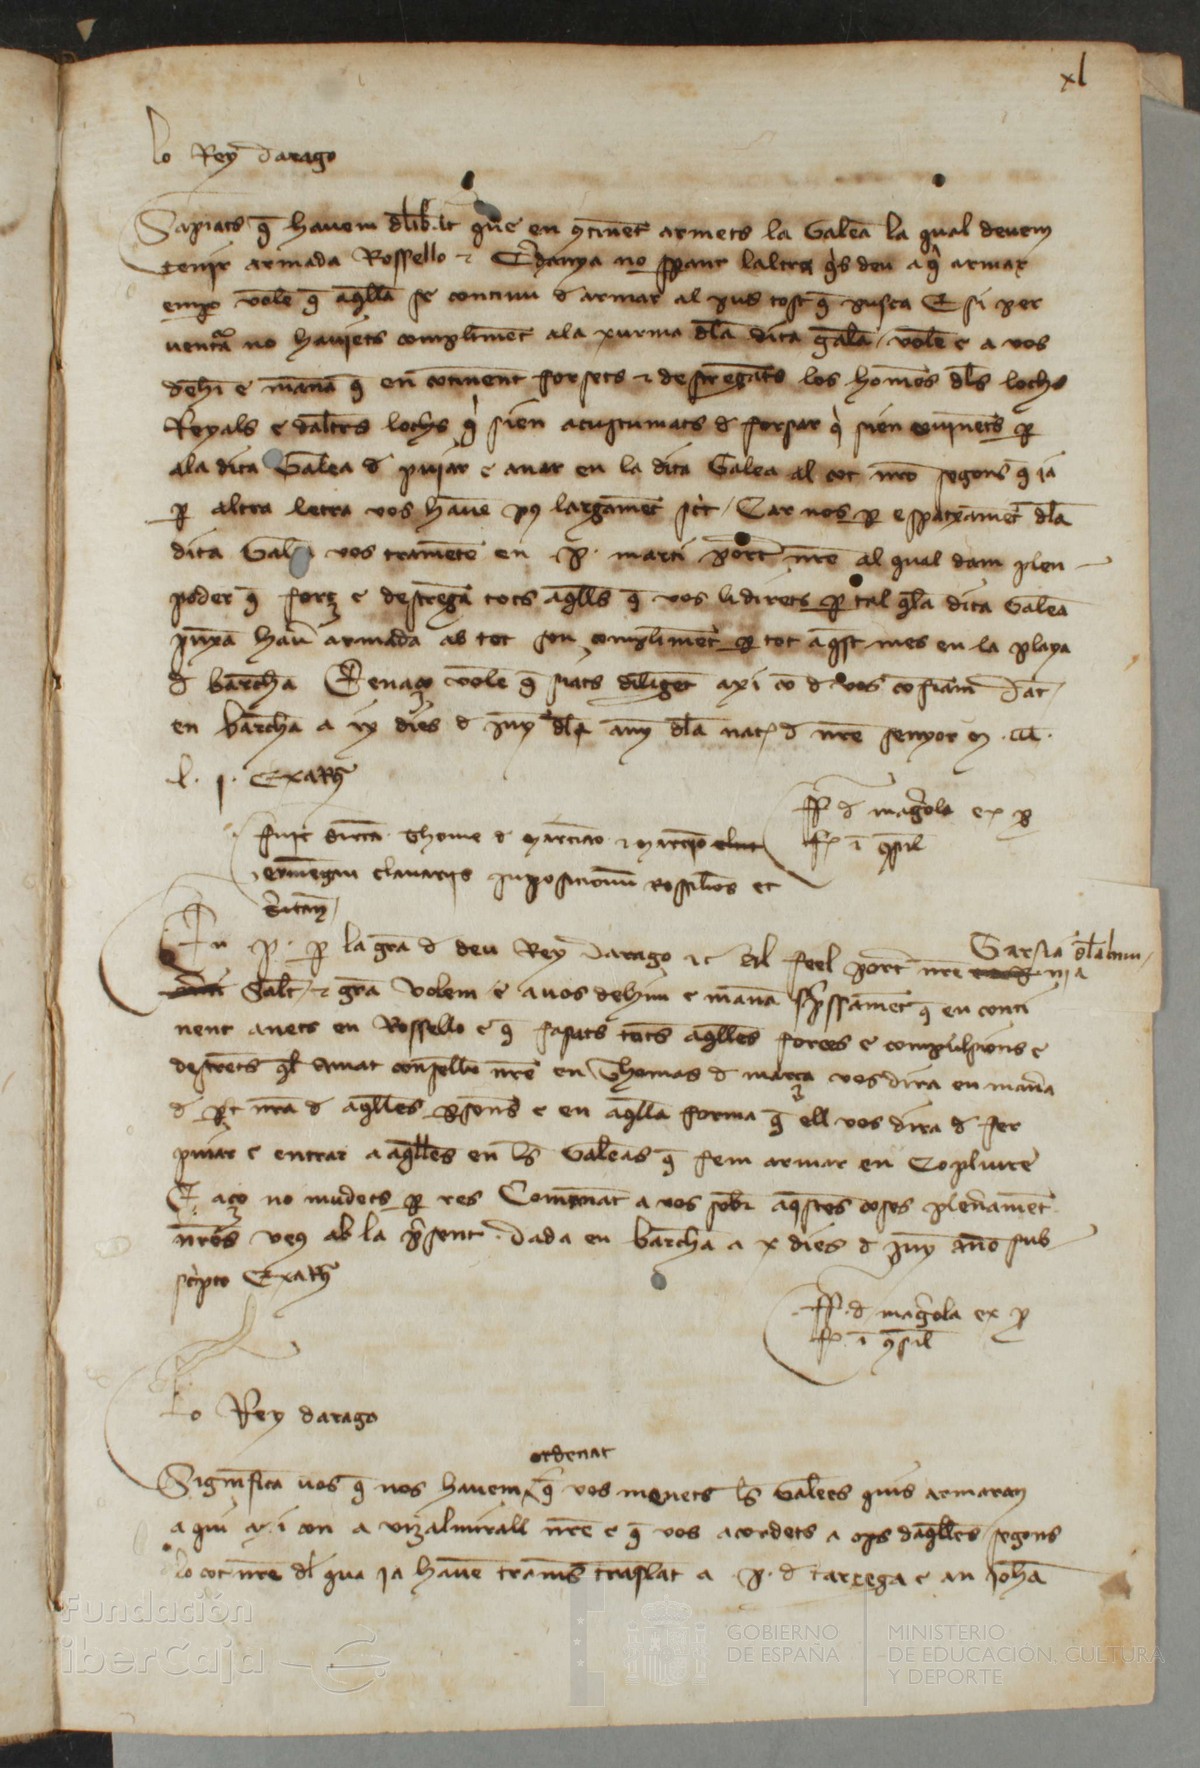 xl
lo Rey darago
Sapiats q̄ havem delib̄at que en ꝯtinēt armets la Galea la qual devem
tenir armada Rossello ⁊ Cerdanya no sperant laltra q̄s deu aq̄ armar
emꝑo volē q̄ aq̄lla se continu d armar al pus tost q̄ pusca E si per
ventᵃ no haviets complimēt ala xurma dla dita galea / volē e a vos
dehī e manā q̄ en cōtinent forsets ⁊ destregats los homēs dls lochs
Reyals e daltres lochs q̄ sien acustumats d forsar q̄ sien covinēts ꝑ
ala dita Galea d pujar e anar en la dita Galea al cot nr̄o segons q̄ ja
ꝑ altra letra vos havē pꝰ largamēt sc̄t / Car nos ꝑ espatxamēt dla
dita Gal vos trametē en .P. marti port nr̄e al qual dam plen
poder q̄ forç e destrega tots aq̄lls q̄ vos li direts ꝑ tal q̄ la dita Galea
puxa hav̄ armada ab tot son complimēt ꝑ tot aq̄st mes en la playa
d bar̄chā E en aço volē q̄ siats diligēt axi cō d vos cofiam Dat
en bar̄chā a ix dies d juny dl any dla nat d nr̄e senyor M . CCC .
l . j . Exat͂h
ffr d mag̃ola ex ꝑ
fc̄ ī ꝯsil
fuit dirc̄ta Thome d marciano ⁊ marcho
ermengau clavariis inpositionū rossiliōs et
c̄itan̄
En P . ꝑ la gr̄a d deu Rey darago ⁊c Al feel port nr̄e Garsia
Salt ⁊ gr̄a Volem e a vos dehim e manā sp̄ssamēt q̄ en conti
nent anets en Rossello e q̄ fasats tots aq̄lles forces e compulsions e
destrets q̄l amat consell̄ nr̄e en Thomas d marça vos dira en manā
d ꝑt nr̄a d aq̄lles ꝑsones e en aq̄lla forma q̄ ell vos dira d fer
pujar e entrar a aq̄lles en ls Galeas q̄ fem armar en Copliure
E aço no mudets ꝑ res Comanāt a vos sobr̄ aq̄stes coses plenamēt
nr̄es veus ab la p̄sent . Dada en bar̄chā a x dies d juny año sub
sc̄ipto Exat͂h
ffr . d mag̃ola ex ꝑ
fc̄ ī ꝯsil
Lo Rey darago
ordenat
Significā vos q̄ nos havem q̄ vos menets ls Galees quis armaran
aqui axi con a vizalmirall nr̄e e q̄ vos acordets a ops daq̄lles segons
lo cot nr̄e dl qual ja havē tramᵉs traslat a .P. d tarrega e an johā
Fundación
iberCaja
GOBIERNO
DE ESPAÑA
MINISTERIO
DE EDUCACIÓN, CULTURA
Y DEPORTE